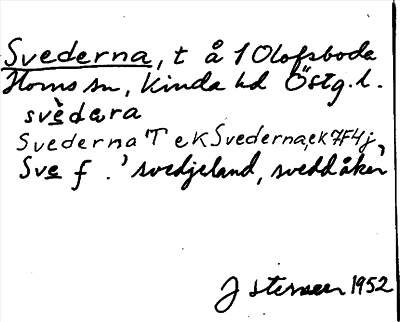 Svederna, t å 1 Olofsboda
Horns sn, Kinda hd Östg. l.
svèdara
Svederna T ek Svederna, ek 7F4j,
Sve f. 'svedjeland, svedd åker'
J 1952